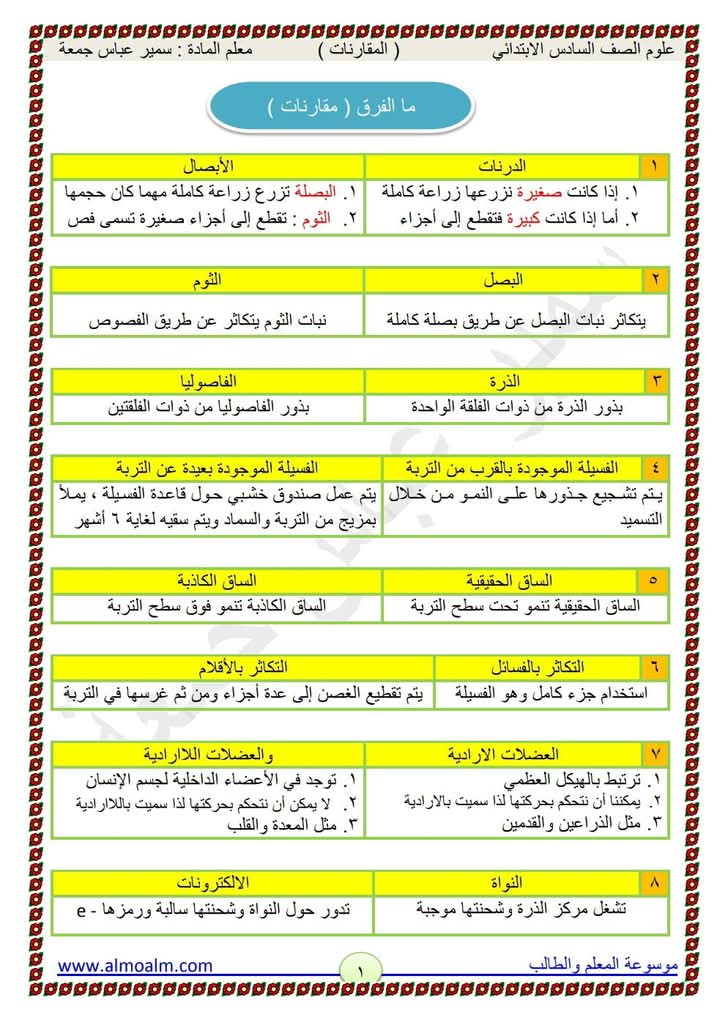 علوم الصف السادس الابتدائي ( المقارنات ) معلم المادة : سمير عباس جمعة
ما الفرق ( مقارنات )
١ الدرنات الأبصال
١. إذا كانت صغيرة نزرعها زراعة كاملة ١. البصلة تزرع زراعة كاملة مهما كان حجمها
٢. أما إذا كانت كبيرة فتقطع إلى أجزاء ٢. الثوم : تقطع إلى أجزاء صغيرة تسمى فص
٢ البصل الثوم
يتكاثر نبات البصل عن طريق بصلة كاملة نبات الثوم يتكاثر عن طريق الفصوص
٣ الذرة الفاصوليا
بذور الذرة من ذوات الفلقة الواحدة بذور الفاصوليا من ذوات الفلقتين
٤ الفسيلة الموجودة بالقرب من التربة الفسيلة الموجودة بعيدة عن التربة
يتم تشجيع جذورها على النمو من خلال يتم عمل صندوق خشبي حول قاعدة الفسيلة ، يملأ
التسميد بمزيج من التربة والسماد ويتم سقيه لغاية ٦ أشهر
٥ الساق الحقيقية الساق الكاذبة
الساق الحقيقية تنمو تحت سطح التربة الساق الكاذبة تنمو فوق سطح التربة
٦ التكاثر بالفسائل التكاثر بالأقلام
استخدام جزء كامل وهو الفسيلة يتم تقطيع الغصن إلى عدة أجزاء ومن ثم غرسها في التربة
٧ العضلات الارادية والعضلات اللاارادية
١. ترتبط بالهيكل العظمي ١. توجد في الأعضاء الداخلية لجسم الإنسان
٢. يمكننا أن نتحكم بحركتها لذا سميت بالارادية ٢. لا يمكن أن نتحكم بحركتها لذا سميت باللاارادية
٣. مثل الذراعين والقدمين ٣. مثل المعدة والقلب
٨ النواة الالكترونات
تشغل مركز الذرة وشحنتها موجبة تدور حول النواة وشحنتها سالبة ورمزها - e
موسوعة المعلم والطالب ١ www.almoalm.com
سمير عباس جمعة